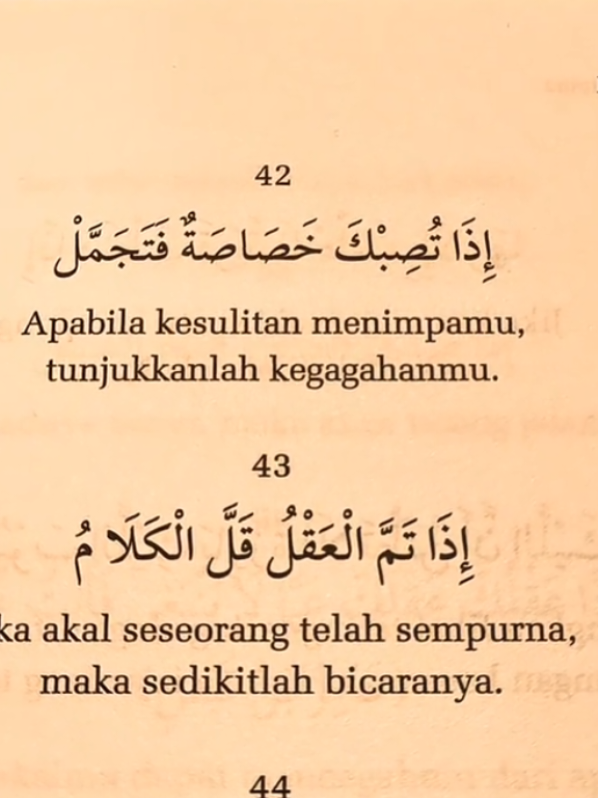 42
إِذَا تُصِبْكَ خَصَاصَةٌ فَتَجَمَّلْ
Apabila kesulitan menimpamu,
tunjukkanlah kegagahanmu.
43
إِذَا تَمَّ الْعَقْلُ قَلَّ الْكَلَا مُ
ka akal seseorang telah sempurna,
maka sedikitlah bicaranya.
44